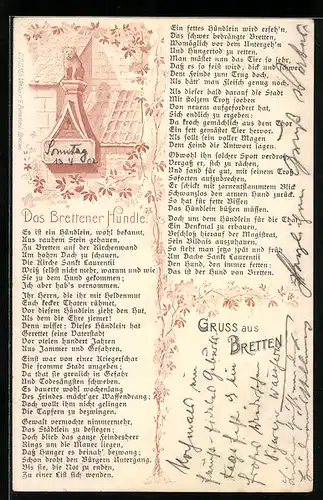 Sonntag
Das Brettener Hundle.
Es ist ein Hündlein, wohl bekannt,
Aus rauhem Stein gehauen,
Zu Bretten auf der Kirchenwand
Am hohen Dach zu schauen.
Die Kirche Sankt Laurentii
Weiß selbst nicht mehr, warum und wie
Sie zu dem Hund gekommen;
Ich aber hab's vernommen.
Ihr Herren, die ihr mit Heldenmut
Euch kecker Thaten rühmet,
Vor diesem Hündlein zieht den Hut,
Als dem die Ehre ziemet!
Denn wisset: Dieses Hündlein hat
Gerettet seine Vaterstadt
Vor vielen hundert Jahren
Aus Jammer und Gefahren.
Einst war von einer Kriegerschar
Die fromme Stadt umgeben;
Da that sie grenlich in Gefahr
Und Todesängsten schweben.
Es dauerte wohl wochenlang
Des Feindes mächt'ger Waffendrang;
Doch wollt ihm nicht gelingen
Die Tapfern zu bezwingen.
Gewalt vermochte nimmermehr,
Das Städtlein zu besiegen;
Doch blieb das ganze Feindesheer
Rings um die Mauer liegen,
Daß Hunger es beinah' bezwang;
Schon droht den Bürgern Untergang,
Bis sie, die Not zu enden,
Zu einer List sich wenden.
Ein fettes Hündlein wird erseh'n,
Das schwer bedrängte Bretten,
Womöglich vor dem Untergeh'n
Und Hungertod zu retten.
Man mästet nun das Tier so sehr,
Daß es so feist wird, dick und schwer,
Dem Feinde zum Trug doch,
Als hätt' man Fleisch genug noch.
Als dieser bald darauf die Stadt
Mit stolzem Trotz soeben
Von neuem aufgefordert hat,
Sich endlich zu ergeben:
Da kroch gemächlich aus dem Thor
Ein fett gemästet Tier hervor.
Als sollt sein voller Magen
Dem Feind die Antwort sagen.
Obwohl ihn solcher Spott verdroß,
Vergaß er, sich zu rächen,
Und fand für gut, mit seinem Troß
Soforten aufzubrechen.
Er schickt mit zornentflammtem Blick
Schwanzlos den armen Hund zurück.
So hat für fette Bissen
Das Hündlein büßen müssen.
Doch um dem Hündlein für die That
Ein Denkmal zu erbauen,
Beschloß hierauf der Magistrat,
Sein Bildnis auszuhauen.
So steht man jetzo spät und früh
Am Dache Sankt Laurentii
Den Hund, den immer fetten;
Das ist der Hund von Bretten.
GRUSS aus
BRETTEN